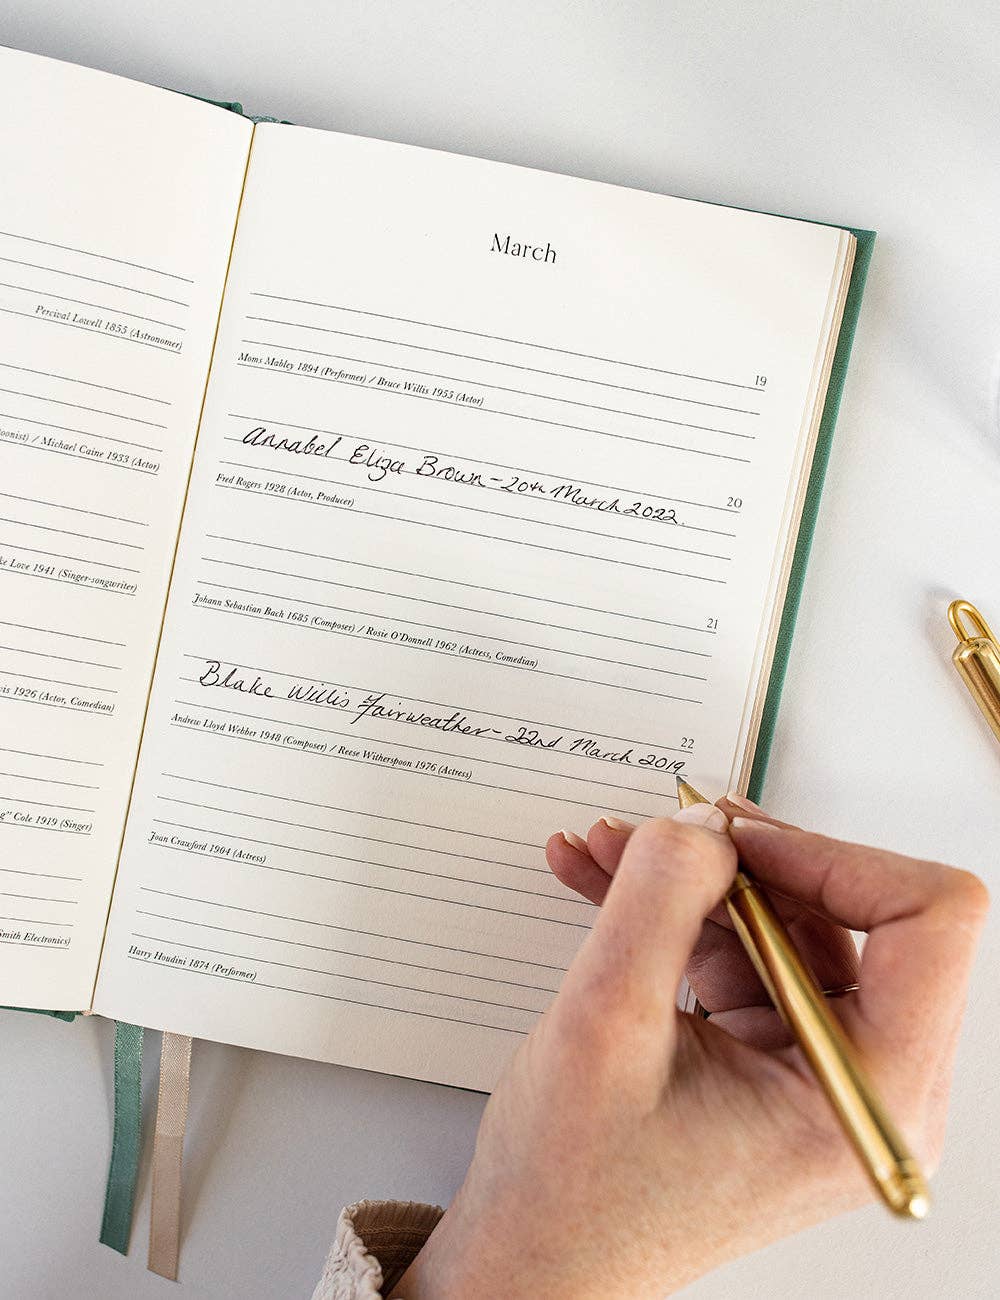 Percival Lowell 1855 (Astronomer)
/ Michael Caine 1933 (Actor)
Love 1941 (Singer-songwriter)
1926 (Actor, Comedian)
Cole 1919 (Singer)
Smith Electronics)
March
19
Moms Mabley 1894 (Performer) / Bruce Willis 1955 (Actor)
Annabel Eliza Brown - 20th March 2022.
20
Fred Rogers 1928 (Actor, Producer)
21
Johann Sebastian Bach 1685 (Composer) / Rosie O'Donnell 1962 (Actress, Comedian)
Blake Willis Fairweather - 22nd March 2019
22
Andrew Lloyd Webber 1948 (Composer) / Reese Witherspoon 1976 (Actress)
Joan Crawford 1904 (Actress)
Harry Houdini 1874 (Performer)